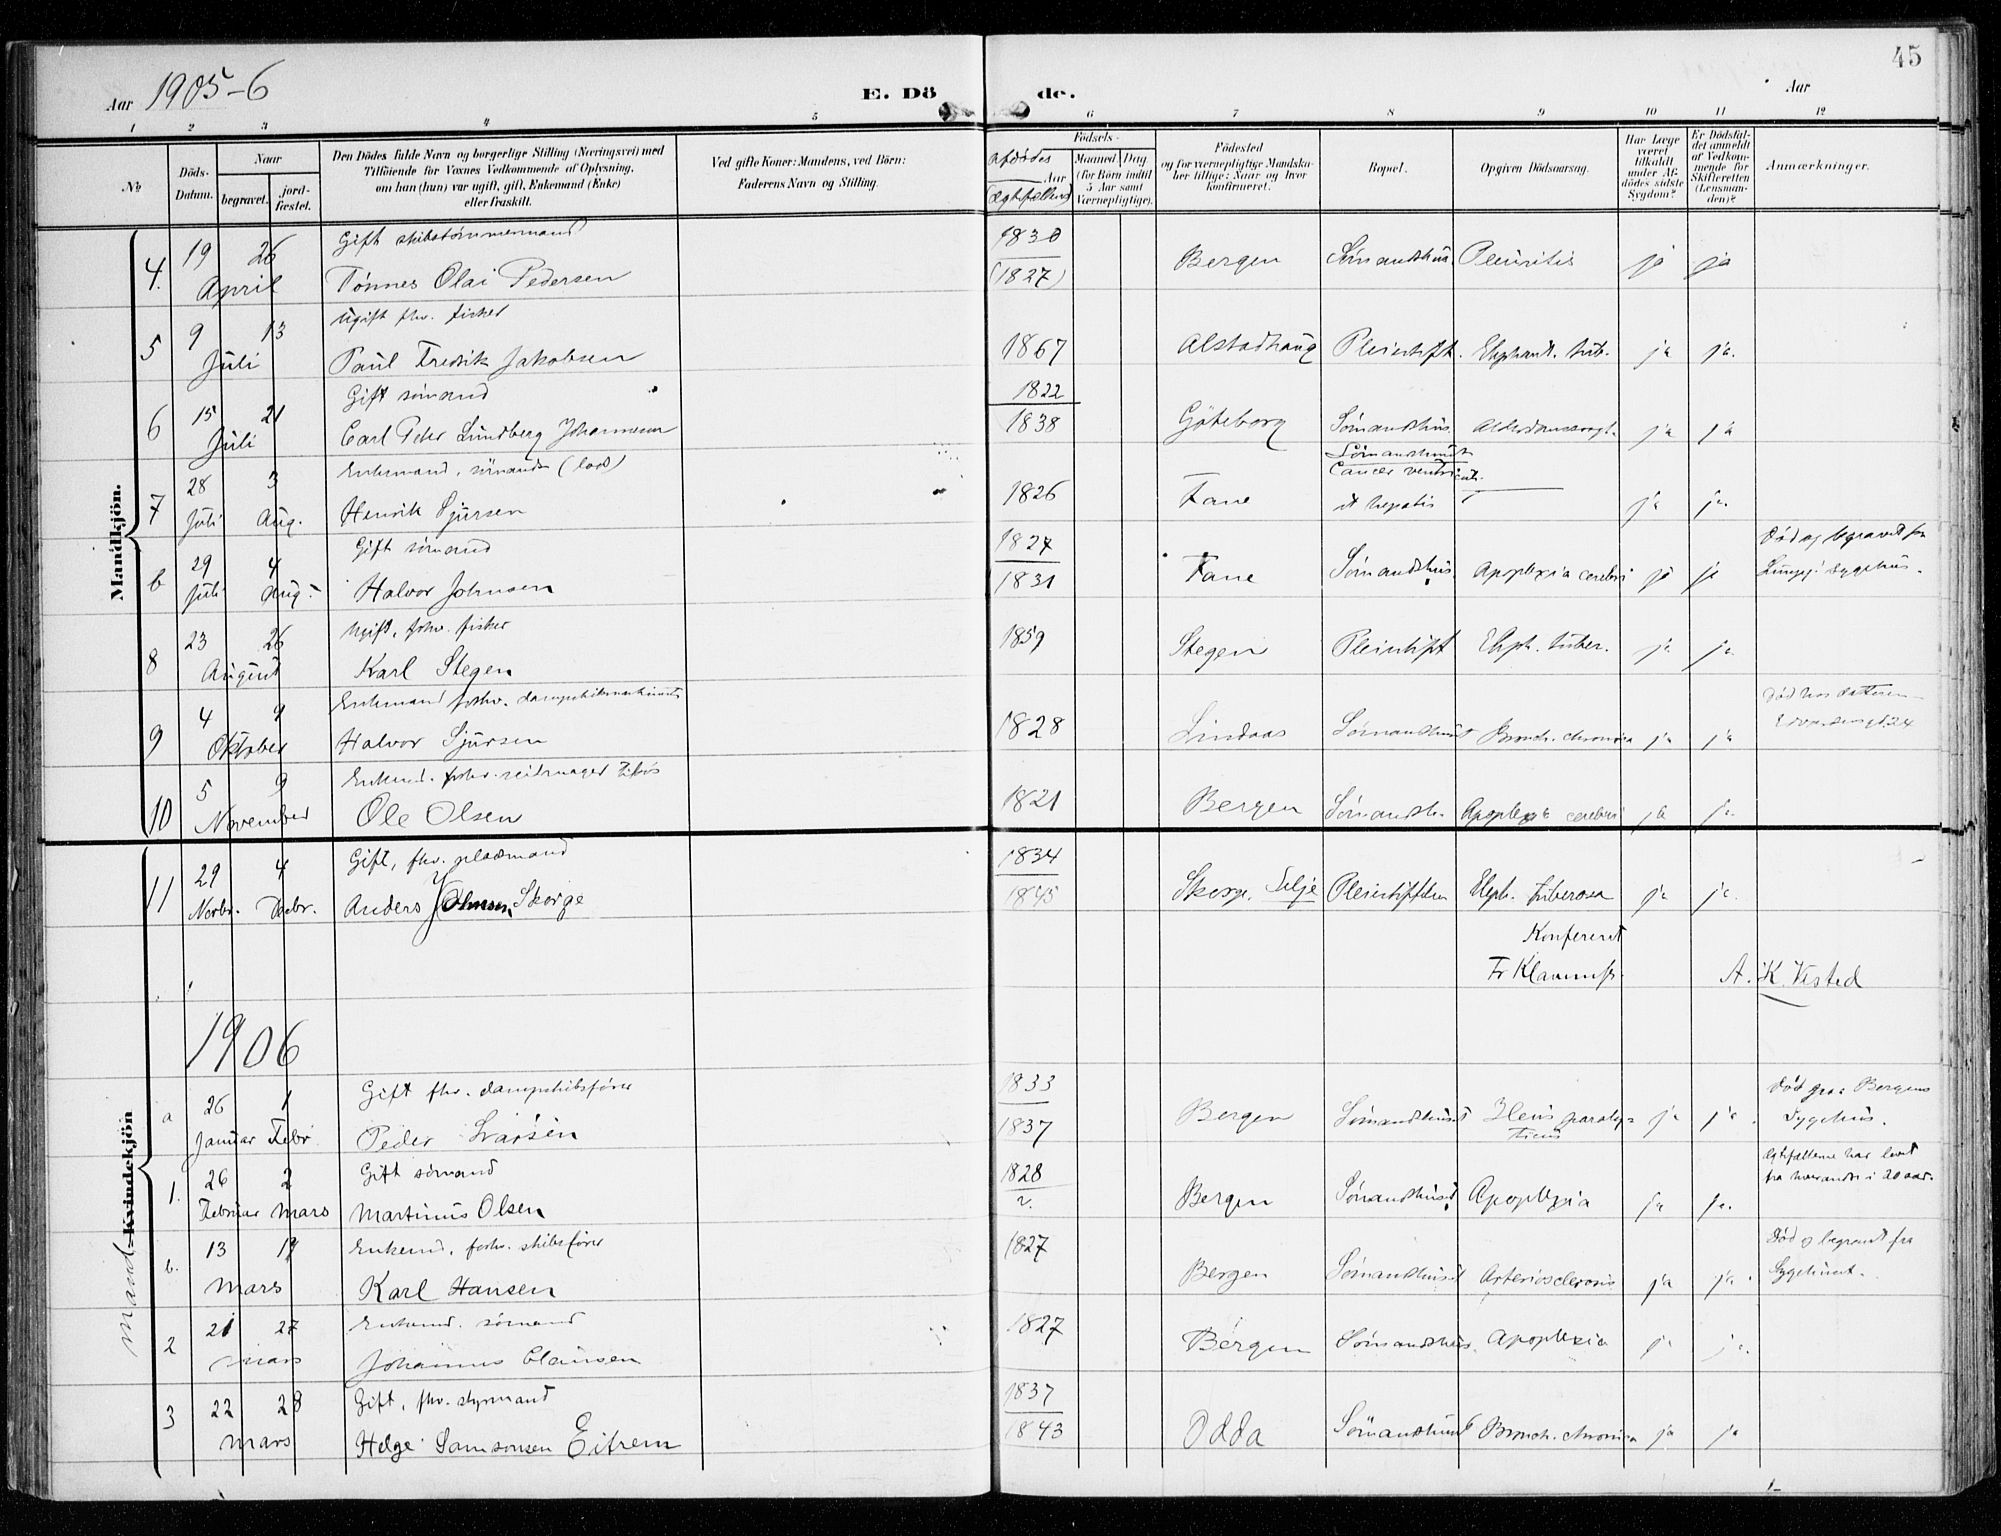 45
Aar 1905-6
E. Dö de.
Aar
1 2 3 4 5 6 7 8 9 10 11 12
No
Döds-Datum.
Naar
begravet.
jord-fæstet.
Den Dödes fulde Navn og borgerlige Stilling (Næringsvei) med
Tilföiende for Voxnes Vedkommende af Oplysning,
om han (hun) var ugift, gift, Enkemand (Enke)
eller fraskilt.
Ved gifte Koner: Mandens, ved Börn:
Faderens Navn og Stilling.
Födsels-
Afdödes
Aar
(Ægtefællens)
Maaned
(for Börn indtil
5 Aar samt
Værnepligtige).
Dag
Födested
og for værnepligtige Mandska-
ber tillige: Naar og hvor
konfirmeret.
Bopæl.
Opgiven Dödsaarsag.
Har Læge
været
tilkaldt
under Af-
dödes sidste
Sygdom?
Er Dödsfal-
det anmeldt
af Vedkom-
mende for
Skifteretten
(Lensman-
den)?
Anmærkninger.
Mandkjön.
4. 19 26 April
Gift skibstømmermand
Tønnes Olai Pedersen
1830
(1827)
Bergen Sømandshus. Pleuritis ja ja
5 9 13 Juli
Ugift fhv. fisker
Paul Fredrik Jakobsen
1867 Alstadhaug Pleiestift. Elephant. tub. ja ja.
6 15 21 Juli
Gift sømand
Carl Peter Lundberg Johannesen
1822
1838
Göteborg Sømandshus. ja ja
7 28 Juli 3 Aug.
Enkemand, sømand (lods)
Henrik Sjursen
1826 Fane
Sømandshuset
Cancer ventriculi
et hepatis
ja ja.
b 29 Juli 4 Aug.
Gift sømand
Halvor Johnsen
1827
1831
Fane Sømandshus. Apoplexia cerebri ja ja
Død og begravet fra
Lungg. Sygehus.
8 23 26 August
Ugift, forhv. fisker
Karl Stegen
1859 Stegen Pleiestift Eleph. tuber. ja ja.
9 4 9 Oktober
Enkemand forhv. dampskibsmaskinist
Halvor Sjursen
1828 Lindaas Sømandshuset Bronch. chronica ja ja
Død hos datteren
10 5 9 November
Enkemd. forhv. seilmager
Ole Olsen
1821 Bergen Sømandsh. Apoplexia cerebri ja ja.
11 29 Novbr. 4 Decbr.
Gift, fhv. pladsmand
Anders Johnsen Skorge
1834
1845
Skorge, Selje Pleiestiftelsen Eleph. tuberosa ja ja.
Konfereret
Fr Klaveness. A. K. Visted
1906
Mand Kvindekjön
a 26 Januar 1 Febr
Gift fhv. dampskibsfører
Peder Larsen
1833
1837
Bergen Sømandshuset Ileus paraly-
ticus
ja ja.
Død fra Bergens
Sygehus.
1. 26 Februar 2 Mars
Gift sømand
Martinus Olsen
1828
?
Bergen Sømandshuset Apoplexia ja ja.
Ægtefællerne har levet
fra hverandre i 20 aar.
b. 13 19 Mars
Enkemd, forhv. skibsfører
Karl Hansen
1827 Bergen Sømandshuset Arteriosclerosis ja ja.
Død og begravet fra
Sygehuset.
2 21 27 Mars
Enkemd. sømand
Johannes Clausen
1827 Bergen Sømandshus. Apoplexia ja ja.
3 22 28 Mars
Gift, fhv. styrmand
Helge Samsonsen Eitrem
1837
1843
Odda Sømandshuset Bronch. chronica ja ja